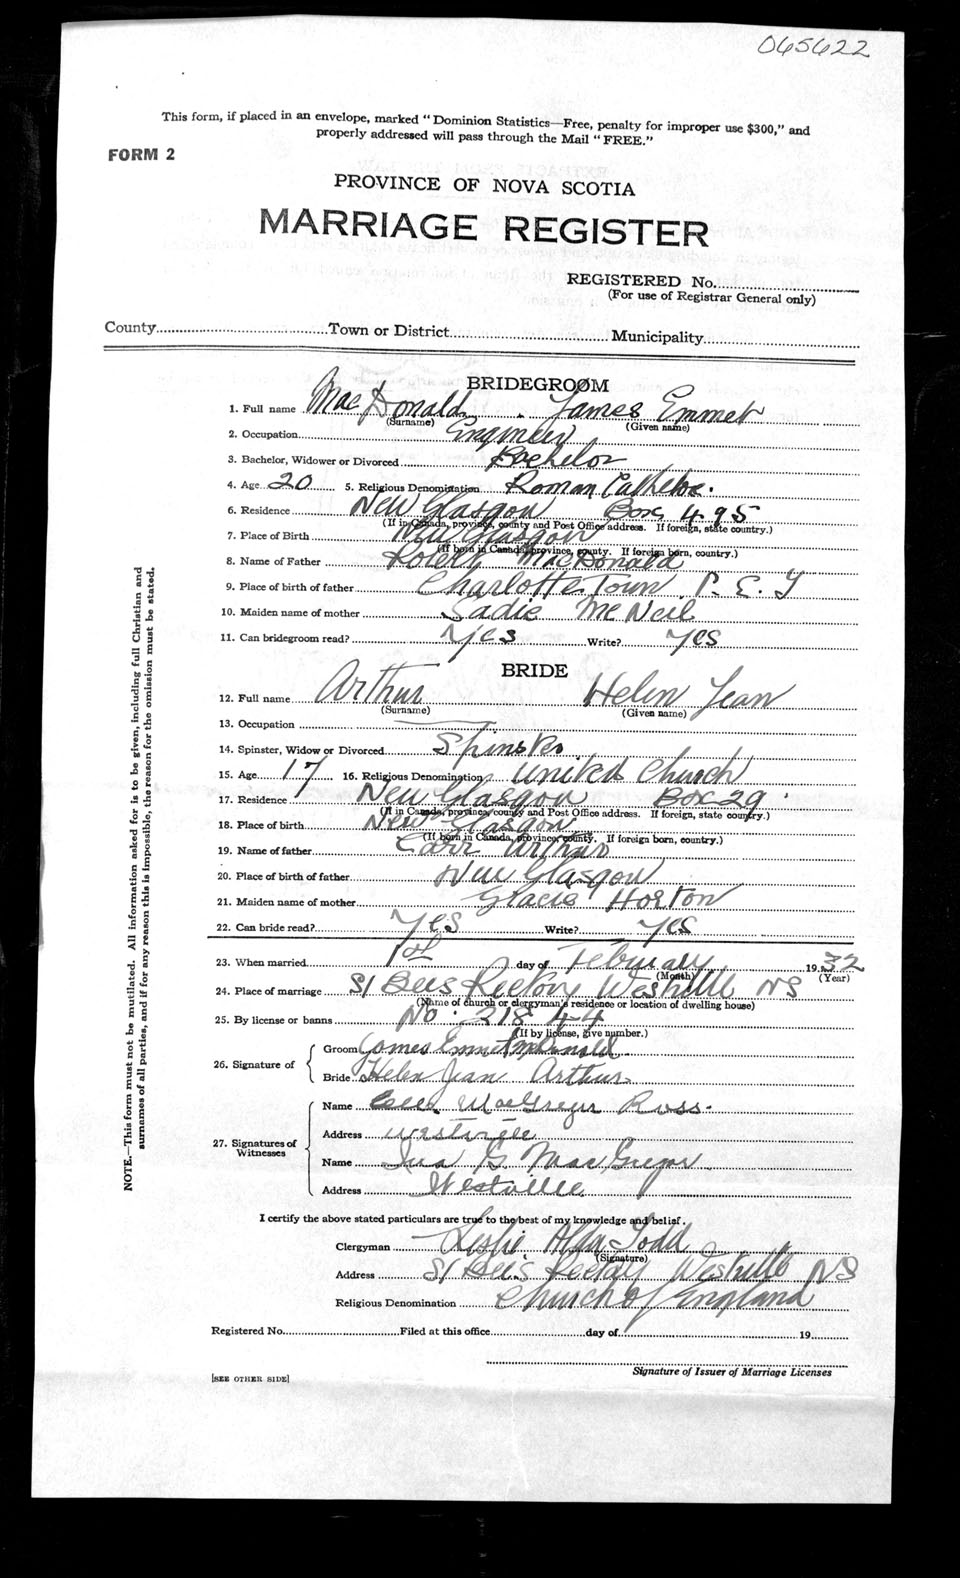 065622
This form, if placed in an envelope, marked "Dominion Statistics—Free, penalty for improper use $300," and
properly addressed will pass through the Mail "FREE."
FORM 2
PROVINCE OF NOVA SCOTIA
MARRIAGE REGISTER
REGISTERED No.
(For use of Registrar General only)
County Town or District Municipality
BRIDEGROOM
1. Full name MacDonald James Emmet
(Surname) (Given name)
2. Occupation Engineer
3. Bachelor, Widower or Divorced Bachelor
4. Age 20 5. Religious Denomination Roman Catholic.
6. Residence New Glasgow Box 495
(If in Canada, province, county and Post Office address. If foreign, state country.)
7. Place of Birth New Glasgow
(If born in Canada, province, county. If foreign born, country.)
8. Name of Father MacDonald
9. Place of birth of father Charlotte Town P. E. I
10. Maiden name of mother Sadie McNeil
11. Can bridegroom read? Yes Write? Yes
BRIDE
12. Full name Arthur Helen Jean
(Surname) (Given name)
13. Occupation
14. Spinster, Widow or Divorced Spinster
15. Age 17 16. Religious Denomination United Church
17. Residence New Glasgow Box 29
(If in Canada, province, county and Post Office address. If foreign, state country.)
18. Place of birth New Glasgow
(If born in Canada, province, county. If foreign born, country.)
19. Name of father Arthur
20. Place of birth of father New Glasgow
21. Maiden name of mother Horton
22. Can bride read? Yes Write? Yes
23. When married 1st day of February 1932
(Month) (Year)
24. Place of marriage St Bees Rectory Westville NS
(Name of church or clergyman's residence or location of dwelling house)
25. By license or banns No. 21844
(If by license, give number.)
26. Signature of
Groom James Emmet McDonald
Bride Helen Jean Arthur
27. Signatures of Witnesses
Name MacGregor Ross.
Address Westville
Name G. MacGregor
Address Westville
I certify the above stated particulars are true to the best of my knowledge and belief.
Clergyman Leslie Todd
(Signature)
Address St Bees Rectory Westville NS
Religious Denomination Church of England
Registered No. Filed at this office day of 19
Signature of Issuer of Marriage Licenses
[SEE OTHER SIDE]
NOTE.—This form must not be mutilated. All information asked for is to be given, including full Christian and
surnames of all parties, and if for any reason this is impossible, the reason for the omission must be stated.